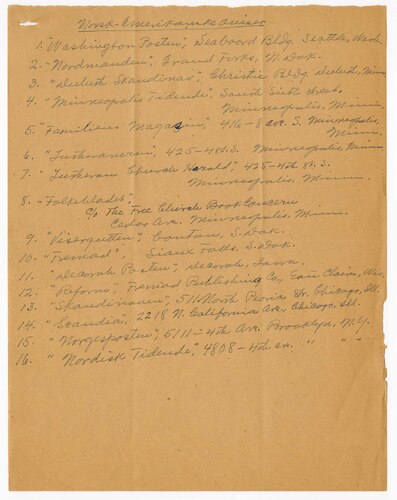 Norsk-Amerikanske Aviser
1. "Washington Posten", Seaboard Bldg. Seattle, Wash.
2. "Nordmanden", Grand Forks, N. Dak.
3. "Duluth Skandinav", Christie Bldg. Duluth, Minn
4. "Minneapolis Tidende", South Sixth Street,
Minneapolis, Minn.
5. "Familiens Magasin", 416-8 ave. S. Minneapolis,
Minn.
6. "Lutheraneren", 425-4th S. Minneapolis, Minn
7. "Lutheran Church Herald", 425-4th St. S.
Minneapolis, Minn.
8. "Folkebladet",
c/o The Free Church Book Concern
Cedar Ave. Minneapolis, Minn.
9. "Visergutten", Canton, S. Dak.
10. "Fremad", Sioux Falls, S. Dak.
11. "Decorah Posten", Decorah, Iowa.
12. "Reform", Fremad Publishing Co., Eau Claire, Wis.
13. "Skandinaven", 511 North Peoria St. Chicago, Ill.
14. "Scandia", 2218 N. California Ave., Chicago, Ill.
15. "Norgesposten", 5111-4th Ave. Brooklyn, N.Y.
16. "Nordisk Tidende", 4808-4th av. " " "